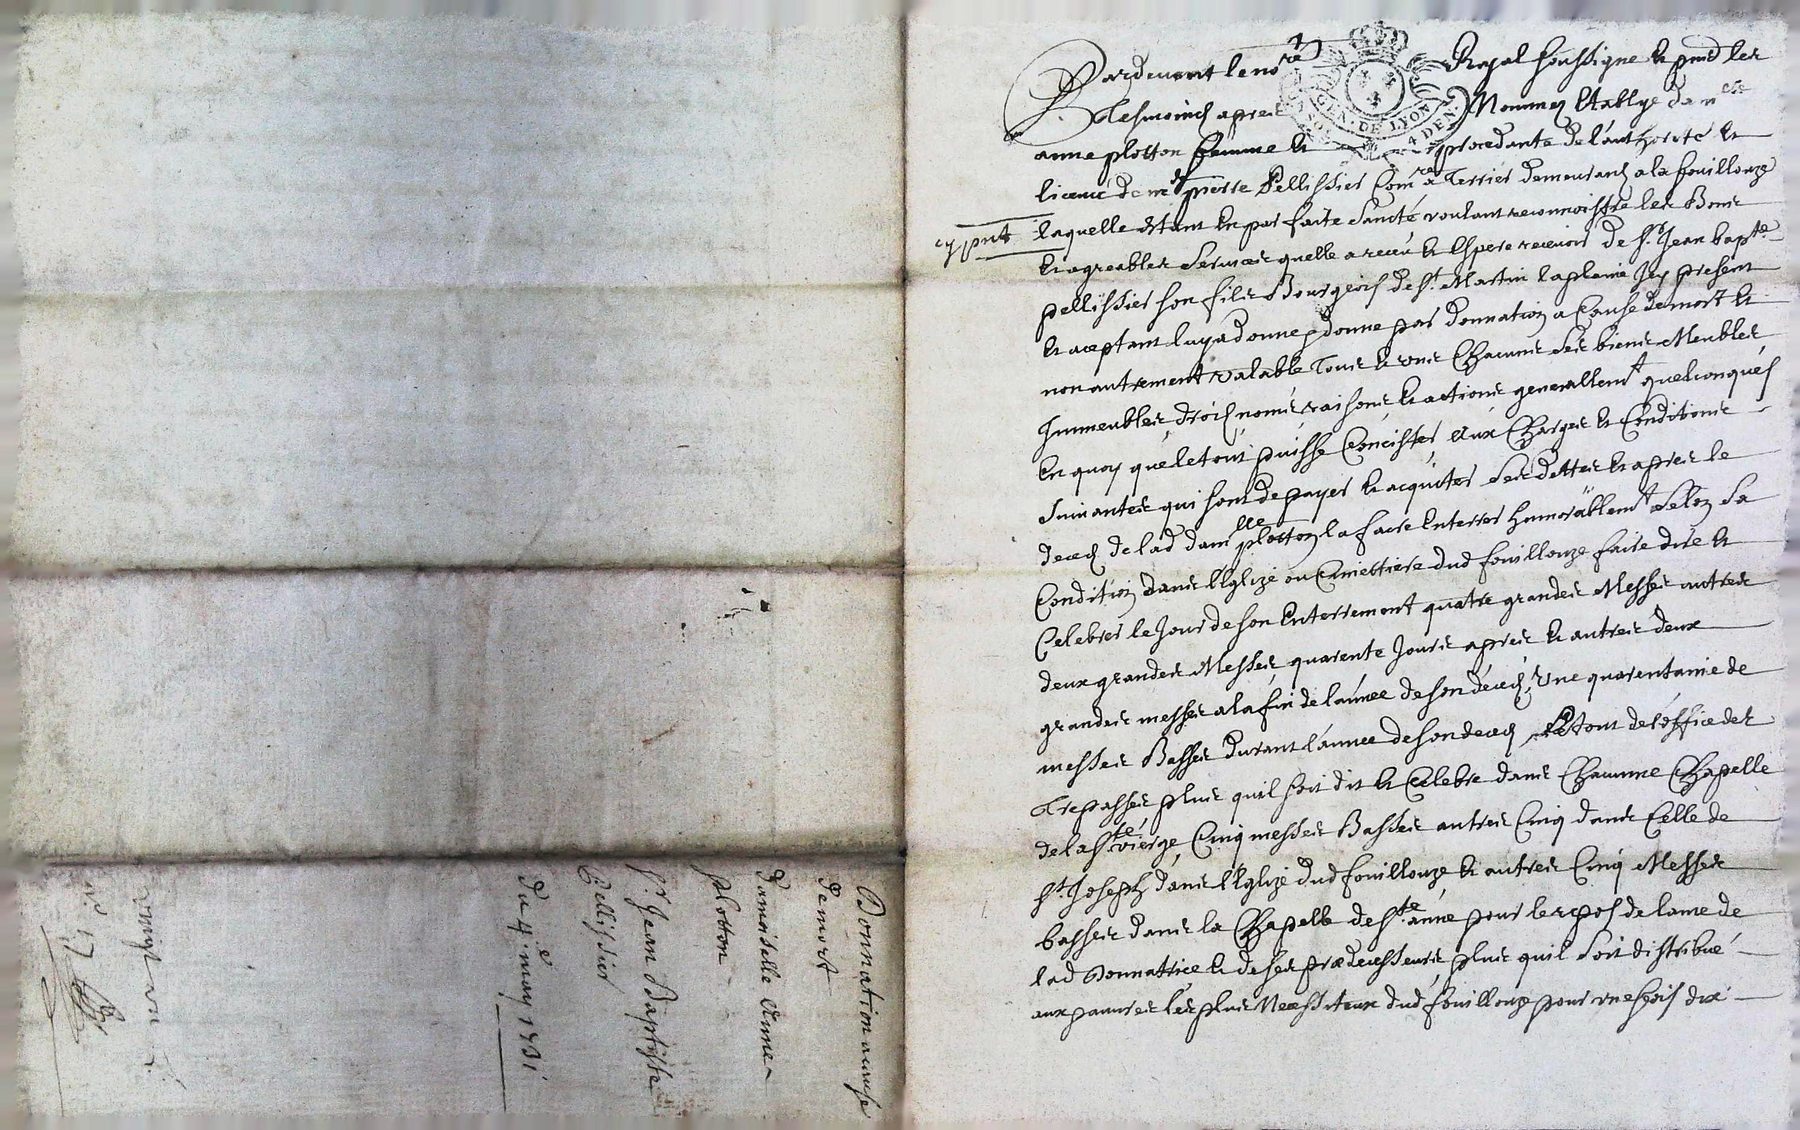 Pardevant le no.re Royal soussigne et pnts les
Tesmoins apres Nommez Establye dam.elle
anne plotton femme et procedante de l'authorité et
licence de m.e pierre Pellissier Com.re a Terrier demeurant a la fouillouze
y pnt laquelle estant en parfaite Santé voulant reconnoistre les Bons
et agreables Services quelle a receu et Espere recevoir de s.r Jean bap.te
pellissier son fils Bourgeois de S.t Martin laplaine Icy present
et aceptant luy a donne et donne par donnation a Cause de mort et
non autrement valable Tous et uns Chacuns Ses biens Meubles
Immeubles droits noms raisons et actions generallem.t quelconques
En quoy que le tout puisse Concister, aux Charges et Conditions
Suivantes qui sont de payer et acquiter Ses dettes et apres le
deces de lad dam.lle plotton la faire Enterrer honnorablem.t Selon Sa
Condition dans l'Eglize ou Cimettiere dud fouillouze faire dire et
Celebrer le Jour de son Enterrement quatre grandes Messes autres
deux grandes Messes quarente Jours apres et autres deux
grandes messes a la fin de l'annee de son deces, Une quarentaine de
messes Basses durant l'annee de son deces, le tout de l'office des
Trepasses plus quil soit dit et Celebre dans Chacune Chapelle
de la S.te vierge Cinq messes Basses autres Cinq dans Celle de
S.t Joseph dans l'Eglize dud fouillouze et autres Cinq Messes
basses dans la Chapelle de S.te anne pour le repos de lame de
lad Donnatrice et de ses predecesseurs plus quil Soit distribué
aux pauvres les plus Necessiteux dud fouillouze pour une fois dix
GEN. DE LYON
4 DEN.
Donnation a cause
de mort
damoiselle Anne
plotton
S.r Jean Baptiste
Pellissier
du 4.e may 1731
n.o 17